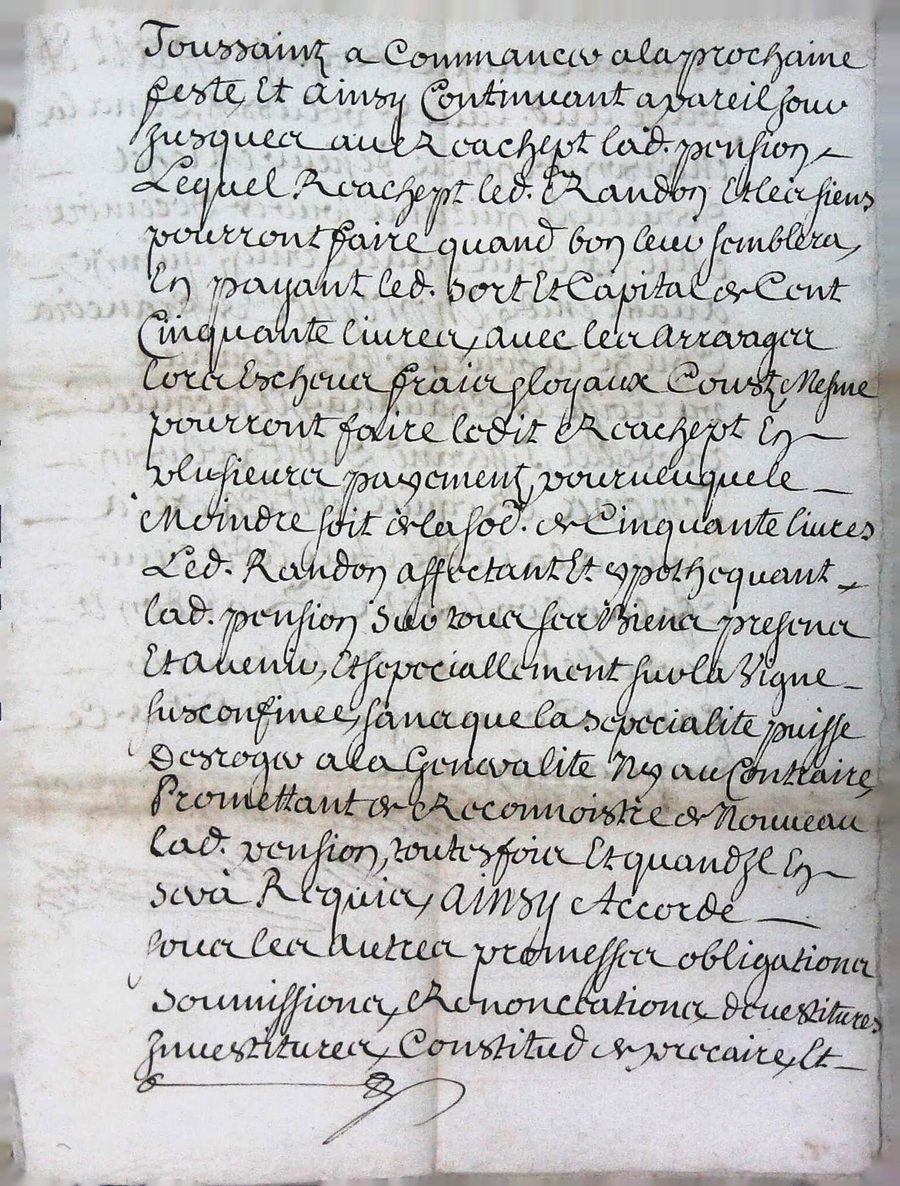 Toussainz a Commancer a la prochaine
feste, Et Ainsy Continuant a pareil jour
Jusques au Rachept lad. pension,
Lequel Rachept led. Sr Randon Et les siens
pourront faire quand bon leur semblera,
En payant led. sort Et Capital de Cent
Cinquante livres, avec les arrerages
lors Escheus frais & loyaux Coust, Mesme
pourront faire ledit Rachept En
plusieurs payement, pourveu que le
Moindre soit de la so.e de Cinquante livres
Led. Randon affectant Et ypothequant
lad. pension sur tous ses Biens presens
Et avenir, Et sepeciallement sur la Vigne
susconfinee, sans que la sepecialite puisse
Desroger a la Generalite Ny au Contraire,
Promettant de Reconnoistre de Nouveau
lad. pension, toutesfois Et quand Jl En
sera Requis, Ainsy Accorde
sous les autres promesses obligations
soumissions, Renonceations, devestitures
Jnvestitures, Constitud de precaire, Et